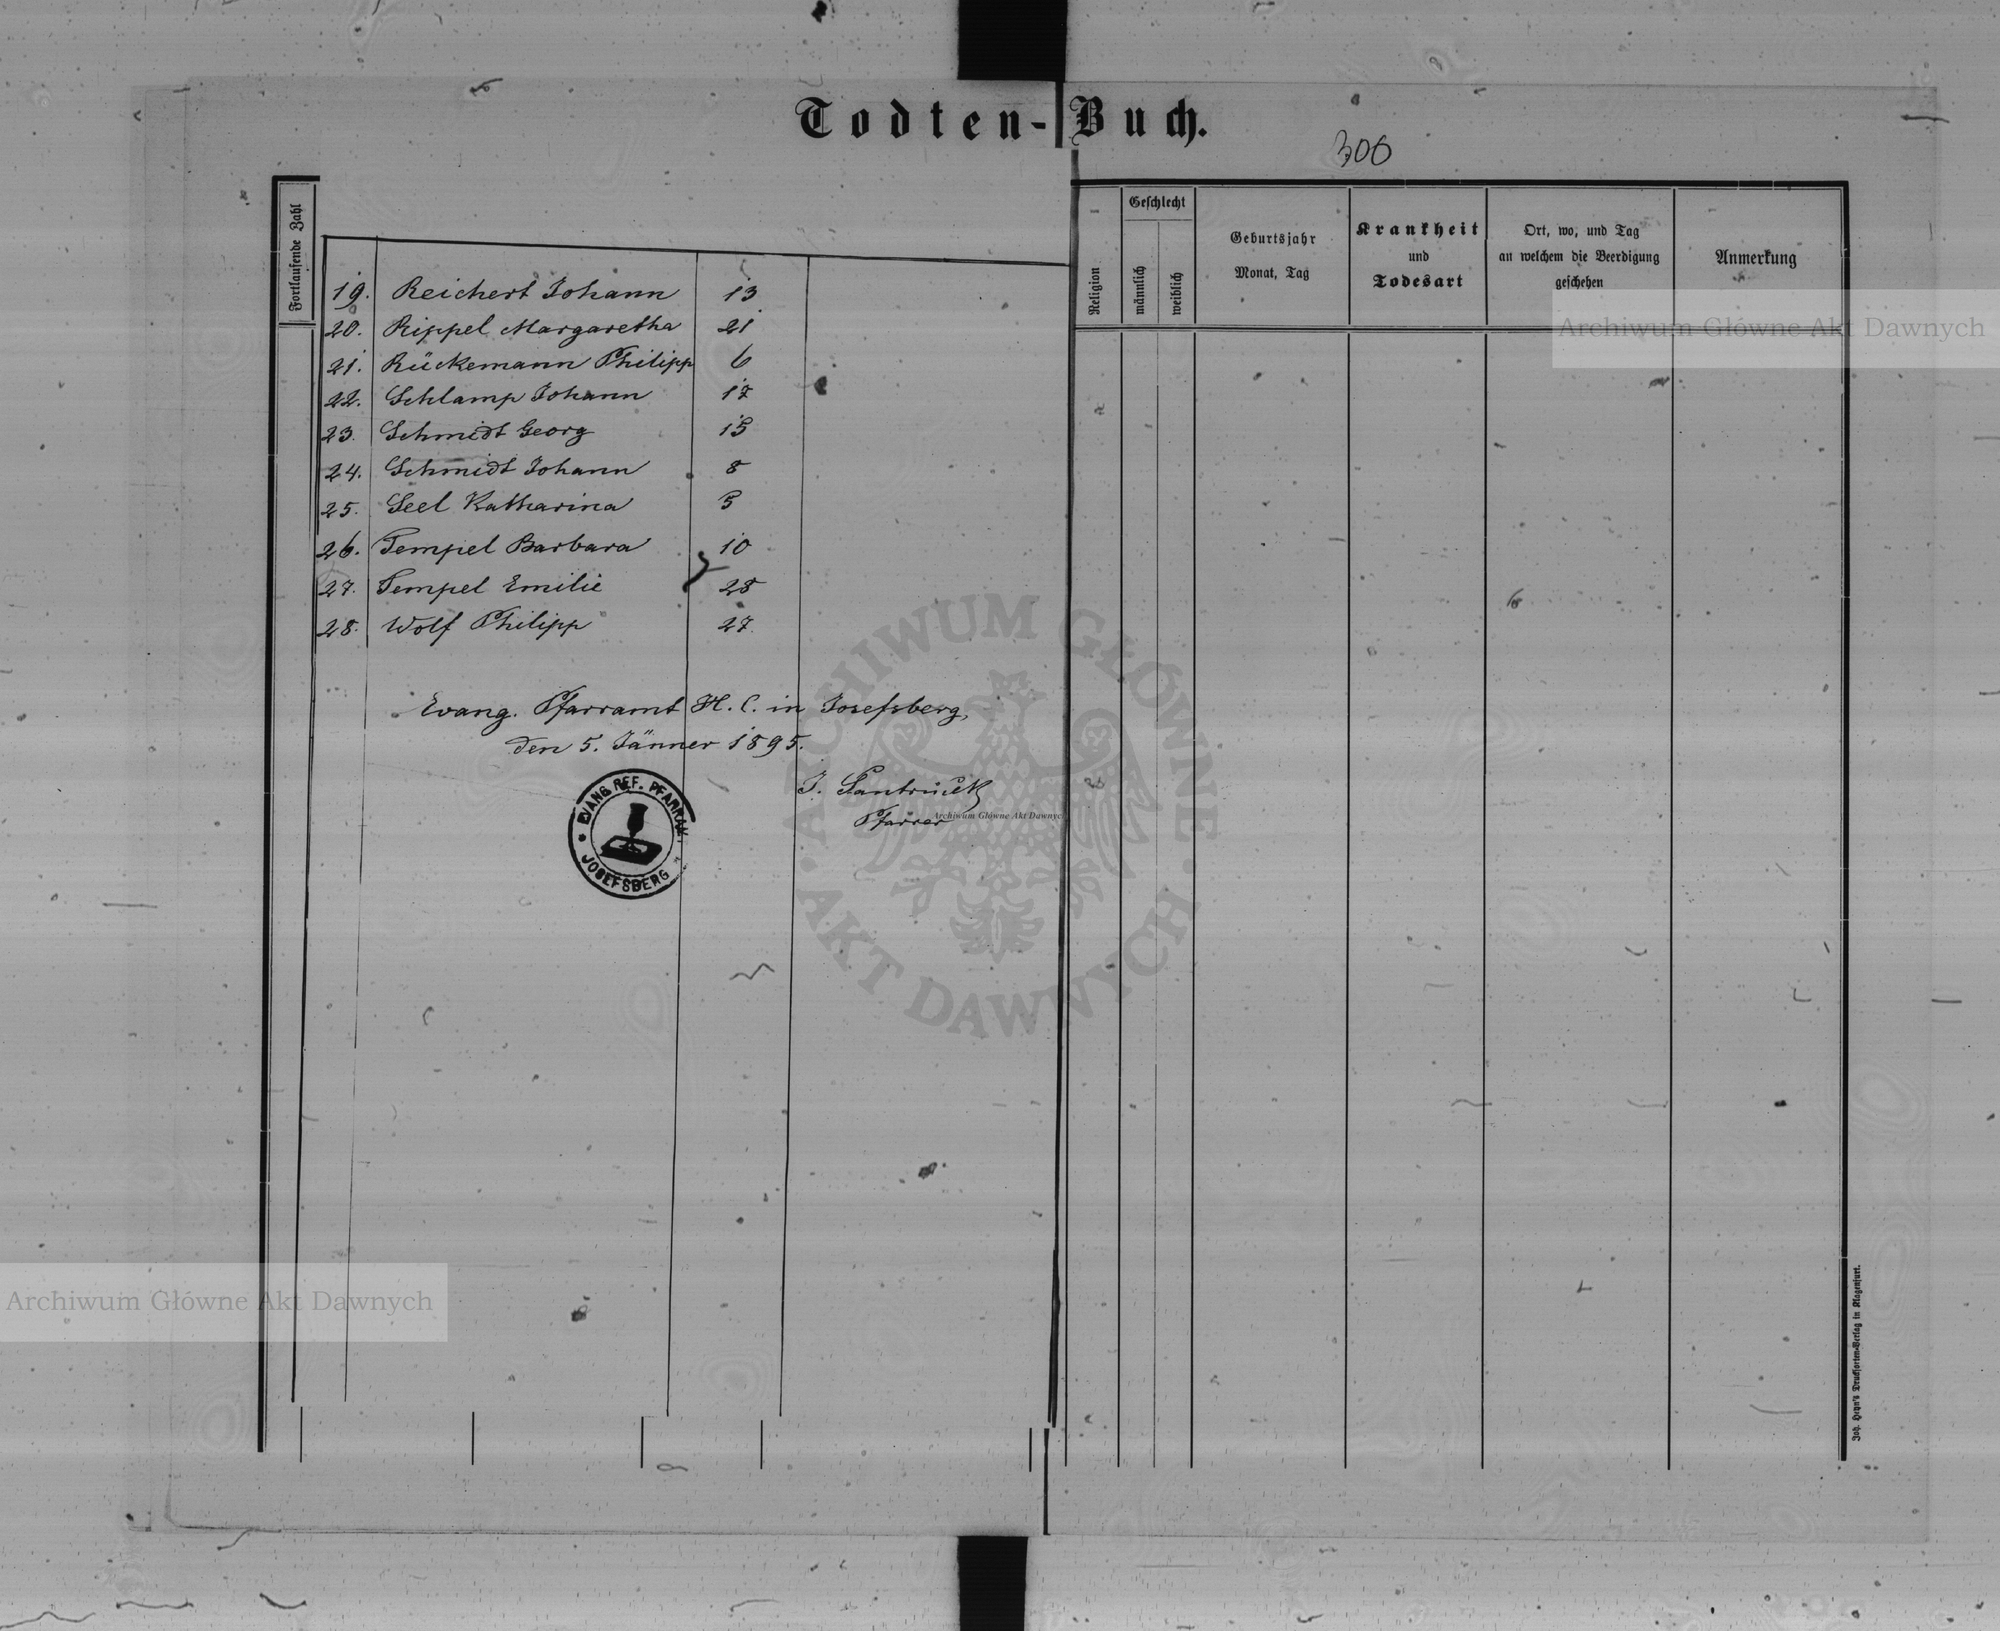 Todten-Buch.
306
Fortlaufende Zahl
Religion
Geschlecht
männlich
weiblich
Geburtsjahr
Monat, Tag
Krankheit
und
Todesart
Ort, wo, und Tag
an welchem die Beerdigung
geschehen
Anmerkung
19. Reichert Johann 13
20. Rippel Margaretha 21
21. Rückemann Philipp 6
22. Schlamp Johann 17
23. Schmidt Georg 15
24. Schmidt Johann 8
25. Seel Katharina 5
26. Tempel Barbara 10
27. Tempel Emilie 28
28. Wolf Philipp 27
Evang. Pfarramt H. C. in Josefsberg,
den 5. Jänner 1895.
J.
Pfarrer
EVANG. REF. PFARRAMT
JOSEFSBERG
Joh. Heyn's Drucksorten-Verlag in Klagenfurt.
Archiwum Główne Akt Dawnych
Archiwum Główne Akt Dawnych
Archiwum Główne Akt Dawnych
ARCHIWUM GŁÓWNE · AKT DAWNYCH ·